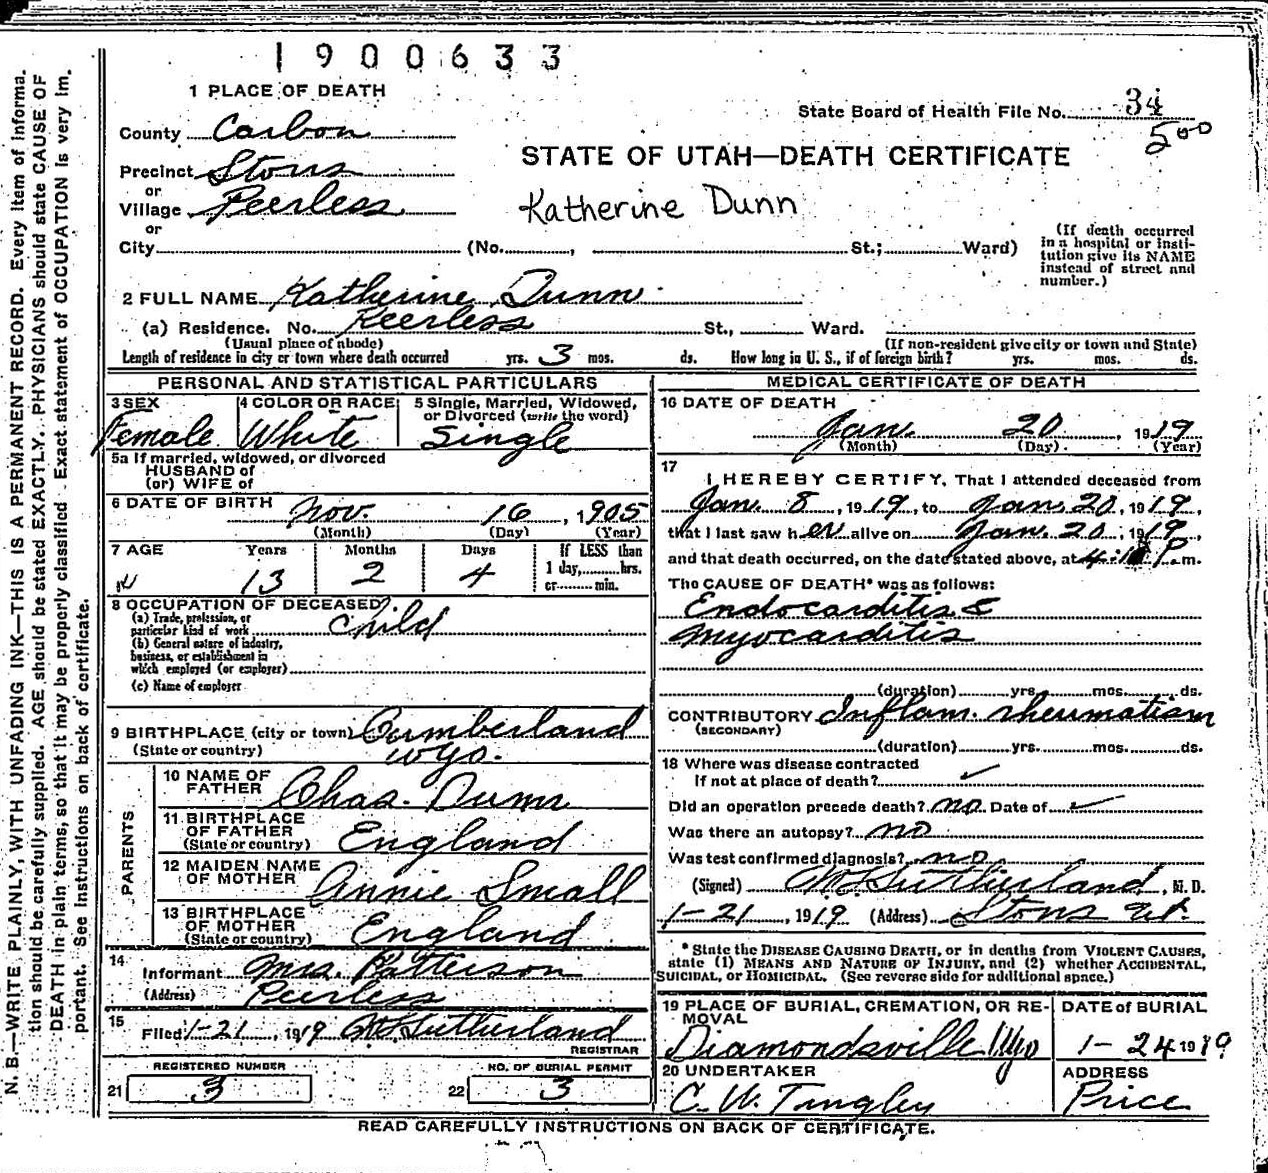 1900633
1 PLACE OF DEATH
State Board of Health File No. 34
500
County Carbon
STATE OF UTAH—DEATH CERTIFICATE
Precinct Stors
or
Village Peerless
Katherine Dunn
or
City (No. , St.; Ward)
(If death occurred
in a hospital or insti-
tution give its NAME
instead of street and
number.)
2 FULL NAME Katherine Dunn
(a) Residence. No. Peerless St., Ward.
(Usual place of abode) (If non-resident give city or town and State)
Length of residence in city or town where death occurred yrs. 3 mos. ds. How long in U. S., if of foreign birth? yrs. mos. ds.
PERSONAL AND STATISTICAL PARTICULARS
3 SEX
Female
4 COLOR OR RACE
White
5 Single, Married, Widowed,
or Divorced (write the word)
Single
5a If married, widowed, or divorced
HUSBAND of
(or) WIFE of
6 DATE OF BIRTH
Nov. 16, 1905
(Month) (Day) (Year)
7 AGE Years Months Days If LESS than
1 day, hrs.
or min.
13 2 4
8 OCCUPATION OF DECEASED
(a) Trade, profession, or
particular kind of work Child
(b) General nature of industry,
business, or establishment in
which employed (or employer)
(c) Name of employer
9 BIRTHPLACE (city or town) Cumberland
(State or country) Wyo.
PARENTS
10 NAME OF
FATHER Chas. Dunn
11 BIRTHPLACE
OF FATHER
(State or country) England
12 MAIDEN NAME
OF MOTHER Annie Small
13 BIRTHPLACE
OF MOTHER
(State or country) England
14
Informant Mrs. Patterson
(Address) Peerless
15
Filed 1-21, 1919 Sutherland
REGISTRAR
REGISTERED NUMBER NO. OF BURIAL PERMIT
21 3 22 3
MEDICAL CERTIFICATE OF DEATH
16 DATE OF DEATH
Jan. 20, 1919
(Month) (Day) (Year)
17
I HEREBY CERTIFY, That I attended deceased from
Jan. 8, 1919, to Jan. 20, 1919,
that I last saw her alive on Jan. 20, 1919,
and that death occurred, on the date stated above, at P.m.
The CAUSE OF DEATH* was as follows:
Endocarditis &
Myocarditis
(duration) yrs. mos. ds.
CONTRIBUTORY Inflam. rheumatism
(SECONDARY)
(duration) yrs. mos. ds.
18 Where was disease contracted
If not at place of death? ✓
Did an operation precede death? no Date of ✓
Was there an autopsy? no
Was test confirmed diagnosis? no
(Signed) Sutherland, M. D.
1-21, 1919 (Address) Stors Ut.
*State the DISEASE CAUSING DEATH, or in deaths from VIOLENT CAUSES,
state (1) MEANS AND NATURE OF INJURY, and (2) whether ACCIDENTAL,
SUICIDAL, or HOMICIDAL. (See reverse side for additional space.)
19 PLACE OF BURIAL, CREMATION, OR RE-
MOVAL
Diamondsville Wyo
DATE of BURIAL
1-24 1919
20 UNDERTAKER
C. W. Tingley
ADDRESS
Price
READ CAREFULLY INSTRUCTIONS ON BACK OF CERTIFICATE.
N. B.—WRITE PLAINLY, WITH UNFADING INK—THIS IS A PERMANENT RECORD. Every item of informa-
tion should be carefully supplied. AGE should be stated EXACTLY. PHYSICIANS should state CAUSE OF
DEATH in plain terms, so that it may be properly classified. Exact statement of OCCUPATION is very im-
portant. See instructions on back of certificate.